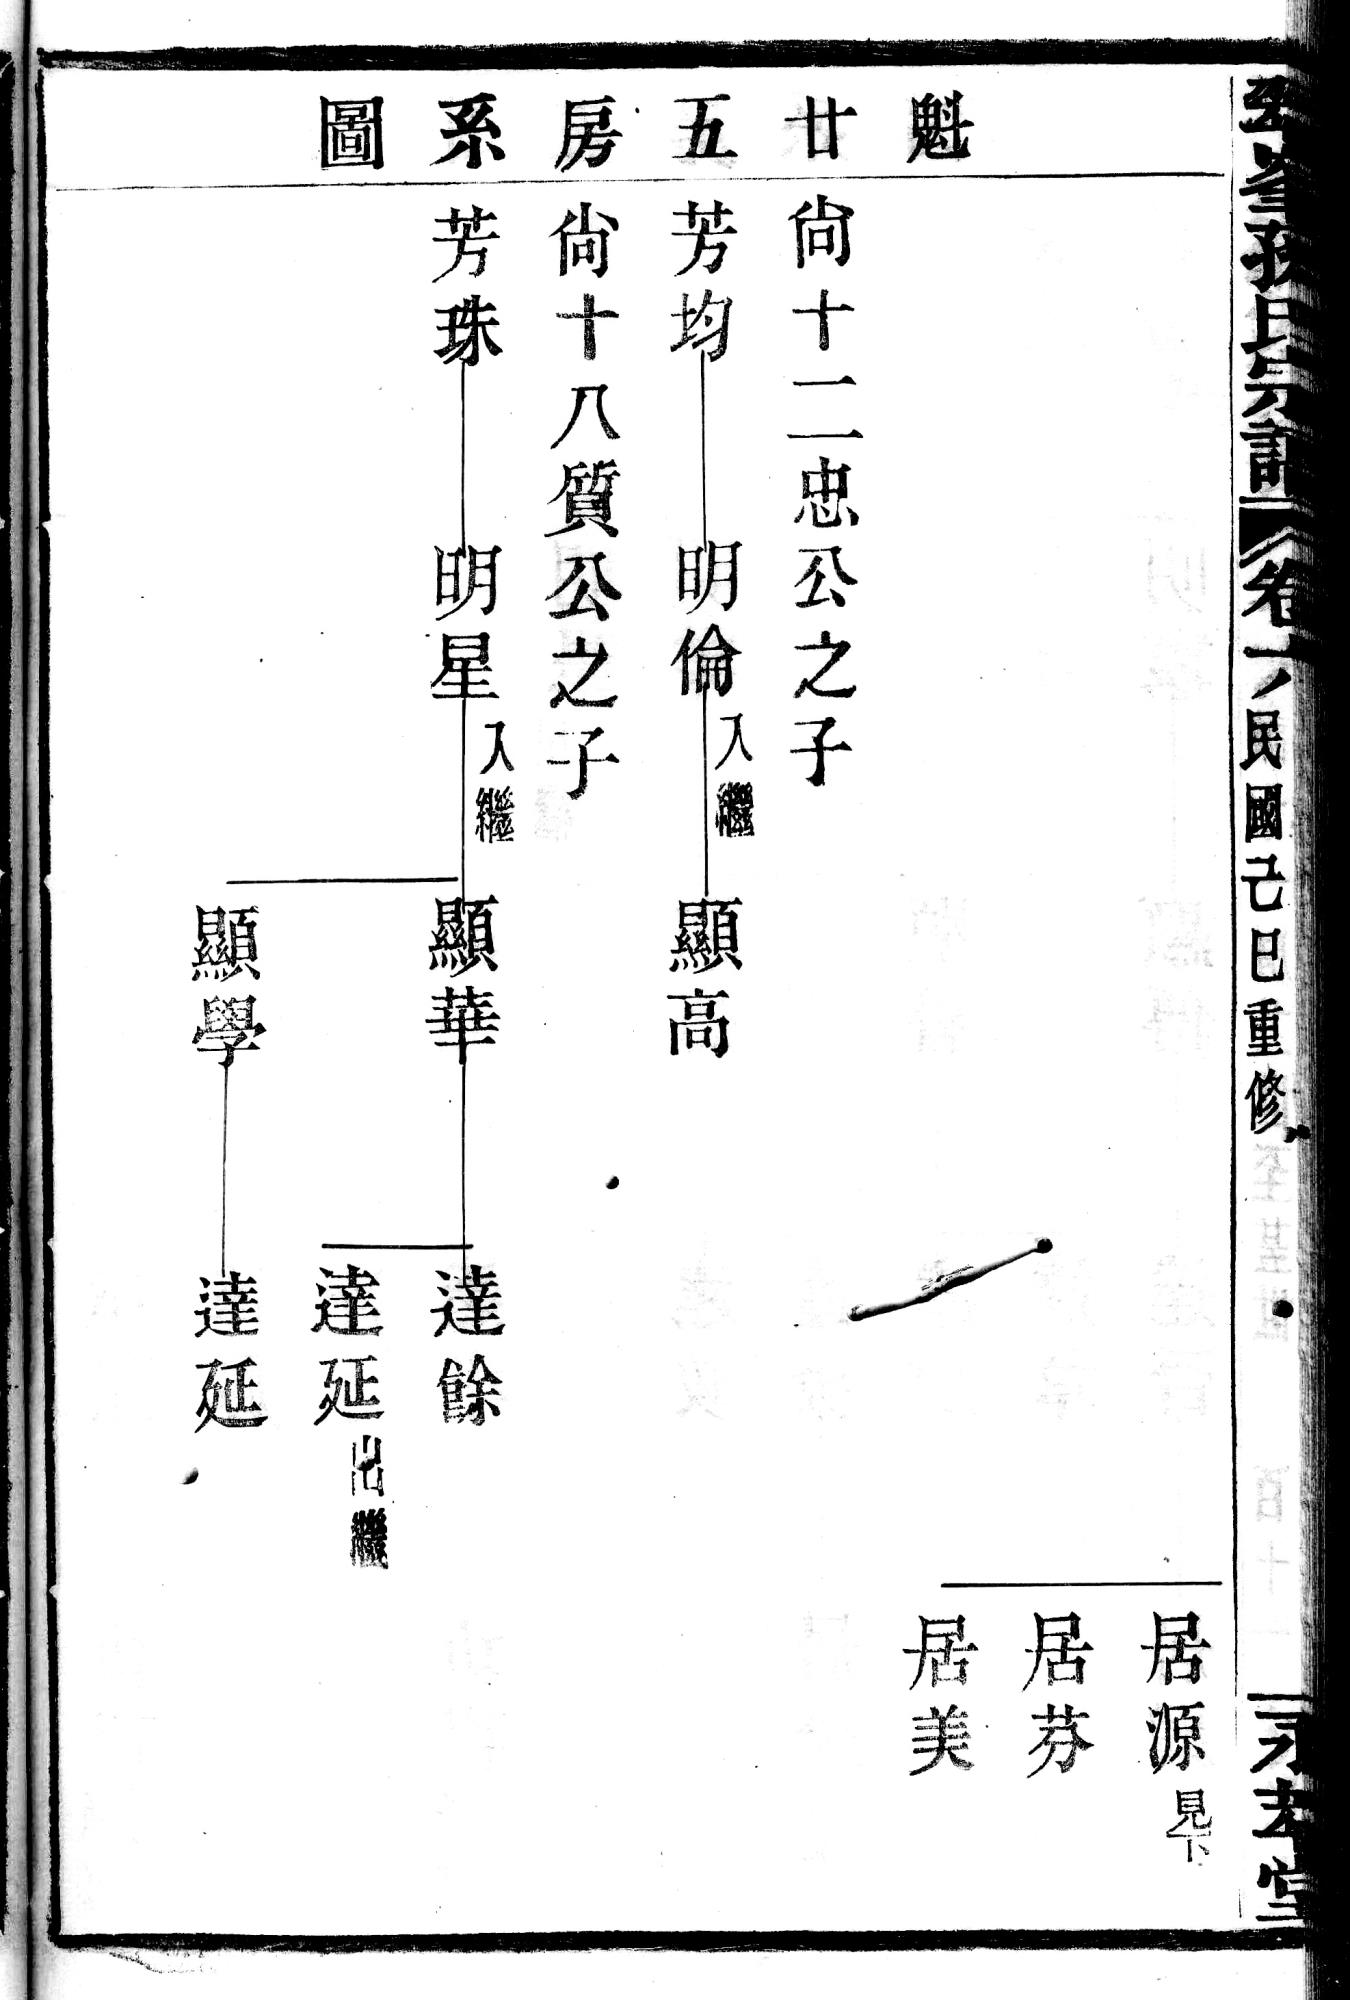 魁廿五房系圖
居源見下
居芬
居美
尙十二忠公之子
芳均
明倫入繼
顯高
尙十八質公之子
芳珠
明星入繼
顯華
達餘
達延出繼
顯學
達延
孫氏宗譜
卷
民國己巳重修
堂